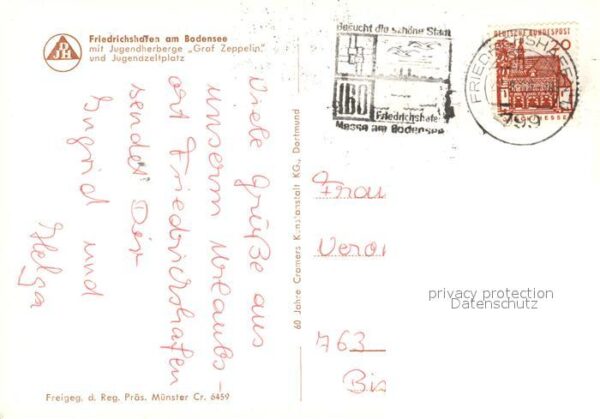 DJH
Friedrichshafen am Bodensee
mit Jugendherberge „Graf Zeppelin“
und Jugendzeltplatz
Viele Grüße aus
unserm Urlaubs-
ort Friedrichshafen
sendet Dir
Ingrid und
Helga
Freigeg. d. Reg. Präs. Münster Cr. 6459
60 Jahre Cramers Kunstanstalt KG., Dortmund
Besucht die schöne Stadt
IBO
Friedrichshafen
Messe am Bodensee
FRIEDRICHSHAFEN
799
DEUTSCHE BUNDESPOST
20
Frau
Vero
763
Bis
privacy protection
Datenschutz